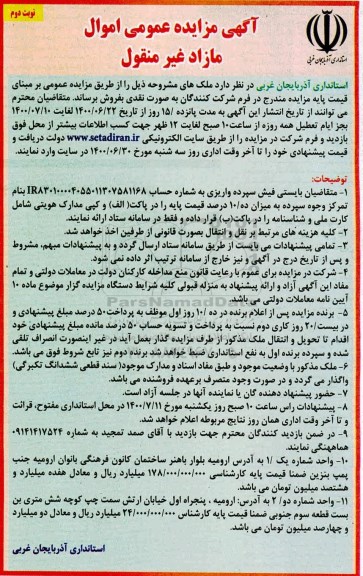 نوبت دوم
آگهی مزایده عمومی اموال
مازاد غیر منقول
استانداری آذربایجان غربی
استانداری آذربایجان غربی در نظر دارد ملک های مشروحه ذیل را از طریق مزایده عمومی بر مبنای
قیمت پایه مزایده مندرج در فرم شرکت کنندگان به صورت نقدی بفروش برساند. متقاضیان محترم
می توانند از تاریخ انتشار این آگهی به مدت پانزده /۱۵ روز از تاریخ ۱۴۰۰/۰۶/۲۲ لغایت ۱۴۰۰/۰۷/۱۰
بجز ایام تعطیل همه روزه از ساعت ۱۰ صبح لغایت ۱۲ ظهر جهت کسب اطلاعات بیشتر از محل فوق
بازدید و فرم شرکت در مزایده را از طریق سایت الکترونیکی www.setadiran.ir دولت دریافت و
قیمت پیشنهادی خود را تا آخر وقت اداری روز سه شنبه مورخ ۱۴۰۰/۰۶/۳۰ در سایت وارد نمایند.
توضیحات:
۱- متقاضیان بایستی فیش سپرده واریزی به شماره حساب IRA۳۰۱۰۰۰۰۴۰۵۵۰۱۱۳۰۷۵۸۱۱۶۸ بنام
تمرکز وجوه سپرده به میزان ده/۱۰ درصد قیمت پایه را در پاکت( الف) و کپی مدارک هویتی شامل
کارت ملی و شناسنامه را در پاکت(ب) قرار داده و فقط در سامانه ستاد ارائه نمایند.
۲- کلیه هزینه های مرتبط بر نقل و انتقال بصورت قانونی از طرفین اخذ خواهد شد.
۳- تمامی پیشنهادات می بایست از طریق سامانه ستاد ارسال گردد و به پیشنهادات مبهم، مشروط
و پس از تاریخ درج در آگهی و نیز خارج از سامانه ترتیب اثر داده نمی شود.
۴- شرکت در مزایده برای عموم با رعایت قانون منع مداخله کارکنان دولت در معاملات دولتی و تمام
مفاد این آگهی آزاد و ارائه پیشنهاد به منزله قبولی کلیه شرایط دستگاه مزایده گزار موضوع ماده ۱۰
آیین نامه معاملات دولتی می باشد.
۵- برنده مزایده پس از اعلام برنده در ده /۱۰ روز اول موظف به پرداخت ۵۰ درصد مبلغ پیشنهادی و
در بیست/۲۰ روز کاری دوم نسبت به پرداخت و تسویه حساب ۵۰ درصد مانده مبلغ پیشنهادی خود
اقدام تا تحویل و انتقال ملک مذکور از طرف مزایده گذار بعمل آید در غیر اینصورت انصراف تلقی
شده و سپرده برنده اول به نفع استانداری ضبط خواهد شد برنده دوم نیز تابع شروط فوق می باشد.
۶- ملک مذکور با وضعیت موجود و طبق مفاد اسناد و مدارک موجود( سند قطعی ششدانگ تکبرگی)
واگذار می گردد و در صورت وجود متصرف برعهده فروشنده می باشد.
۷- حضور پیشنهاد دهنده گان یا نماینده آنها در جلسه آزاد است.
۸- پیشنهادات راس ساعت ۱۰ صبح روز یکشنبه مورخ ۱۴۰۰/۷/۱۱ در محل استانداری مفتوح، قرائت
و تا آخر وقت اداری همان روز نتایج مربوطه اعلام خواهد شد.
۹- در ضمن بازدید کنندگان محترم جهت بازدید با آقای صمد تمجید به شماره ۰۹۱۴۱۴۱۷۵۲۴
هماهنگی نمایند.
۱۰- واحد شماره یک /۱ به آدرس ارومیه بلوار باهنر ساختمان کانون فرهنگی بانوان ارومیه جنب
پمپ بنزین ضمنا قیمت پایه کارشناسی ۱۷۸/۰۰۰/۰۰۰/۰۰۰ میلیارد ریال و معادل هفده میلیارد و
هشتصد میلیون تومان می باشد.
۱۱- واحد شماره دو/ ۲ به آدرس: ارومیه ، پنجراه اول خیابان ارتش سمت چپ کوچه شش متری بن
بست قطعه سوم جنوبی ضمنا قیمت پایه کارشناسی ۲۴/۰۰۰/۰۰۰/۰۰۰ میلیارد ریال و معادل دو میلیارد
و چهارصد میلیون تومان می باشد.
استانداری آذربایجان غربی